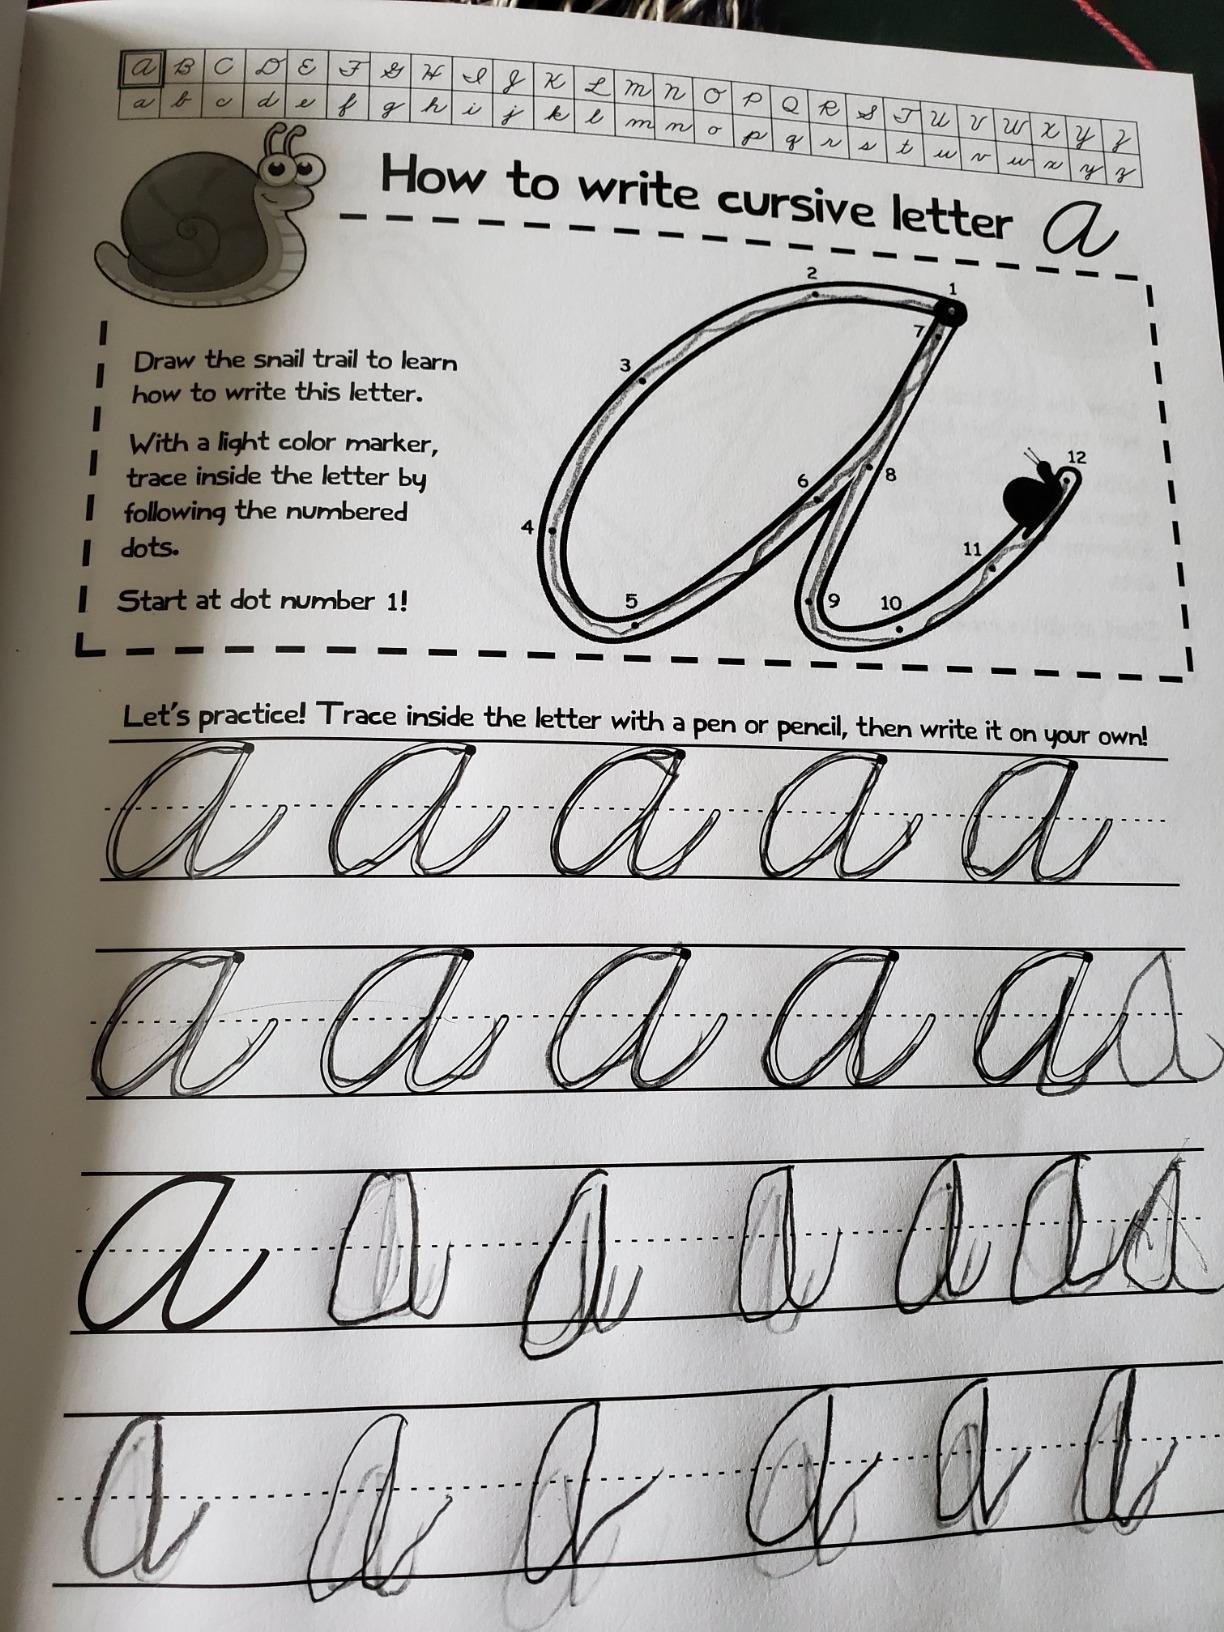 A B C D E F G H I J K L M N O P Q R S T U V W X Y Z
a b c d e f g h i j k l m n o p q r s t u v w x y z
How to write cursive letter a
Draw the snail trail to learn
how to write this letter.
With a light color marker,
trace inside the letter by
following the numbered
dots.
Start at dot number 1!
1
2
3
4
5
6
7
8
9
10
11
12
Let's practice! Trace inside the letter with a pen or pencil, then write it on your own!
a a a a a
a a a a a a
a a a a a a a
a a a a a a